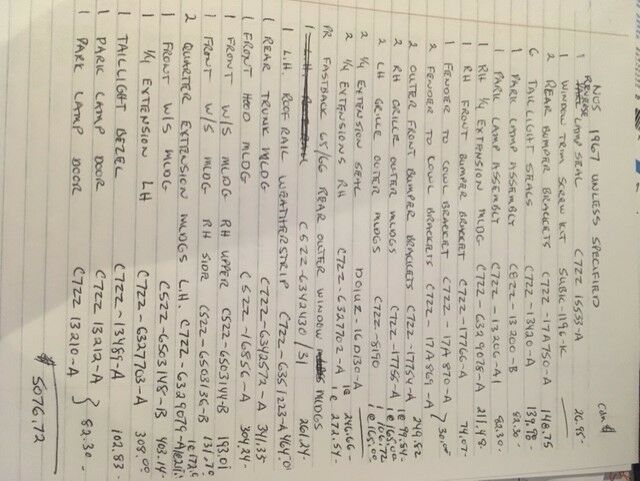 NOS 1967 UNLESS SPECIFIED CAN $
1 REVERSE LAMP SEAL C7ZZ 15533-A 26.95
1 WINDOW TRIM SCREW KIT SUBK 1196-K
2 REAR BUMPER BRACKETS C7ZZ-17A750-A 148.75
6 TAILLIGHT SEALS C7ZZ-13420-A 139.98
1 PARK LAMP ASSEMBLY C8ZZ 13200-B 82.30
1 PARK LAMP ASSEMBLY C7ZZ-13206-A1 82.30
1 RH 1/4 EXTENSION MLDG C7ZZ-6329078-A 211.48
1 RH FRONT BUMPER BRACKET C7ZZ-17766-A 74.07
1 FENDER TO COWL BRACKET C7ZZ-17A870-A } 30.00
2 FENDER TO COWL BRACKETS C7ZZ-17A869-A
2 OUTER FRONT BUMPER BRACKETS C7ZZ-17754-A 249.82
2 RH GRILLE OUTER MLDGS C7ZZ-
2 LH GRILLE OUTER MLDGS C7ZZ-8190 1@165.00
2 1/4 EXTENSION SEAL 1@
2 1/4 EXTENSIONS RH C7ZZ 6327702-A 1@ 272.54
PR FASTBACK 65/66 REAR OUTER WINDOW MLDGS
C5ZZ-6342430/31 261.24
1 L.H ROOF RAIL WEATHERSTRIP C7ZZ-6351223-A 464.01
1 REAR TRUNK MLDG C7ZZ-6342572-A 341.35
1 FRONT HOOD MLDG C5ZZ-16856-A 304.24
1 FRONT W/S MLDG RH UPPER C5ZZ-6503144-B 193.01
1 FRONT W/S MLDG RH SIDE C5ZZ-6503136-B 131.70
2 QUARTER EXTENSION MLDGS L.H. C7ZZ-6329079-A
1 FRONT W/S MLDG C5ZZ-6503148-B 403.14
1 1/4 EXTENSION LH C7ZZ-6327703-A 308.00
1 TAILLIGHT BEZEL C7ZZ-13489-A 102.83
1 PARK LAMP DOOR C7ZZ 13212-A } 82.30
1 PARK LAMP DOOR C7ZZ 13210-A
$ 5076.72